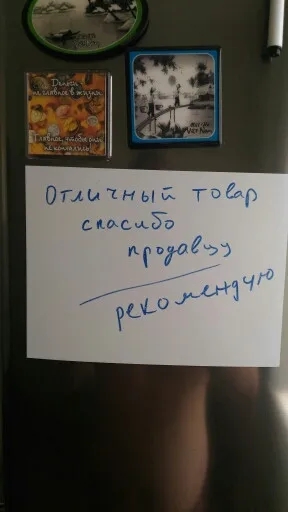 Деньги
не главное в жизни,
главное, чтобы они
не кончались!
MUI NE
VIET NAM
Отличный товар
спасибо
продавцу
рекомендую